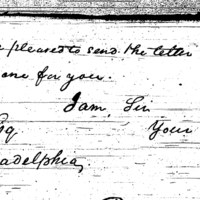 pleased to send the letter
one for you.
I am, Sir
Esq Your
adelphia,